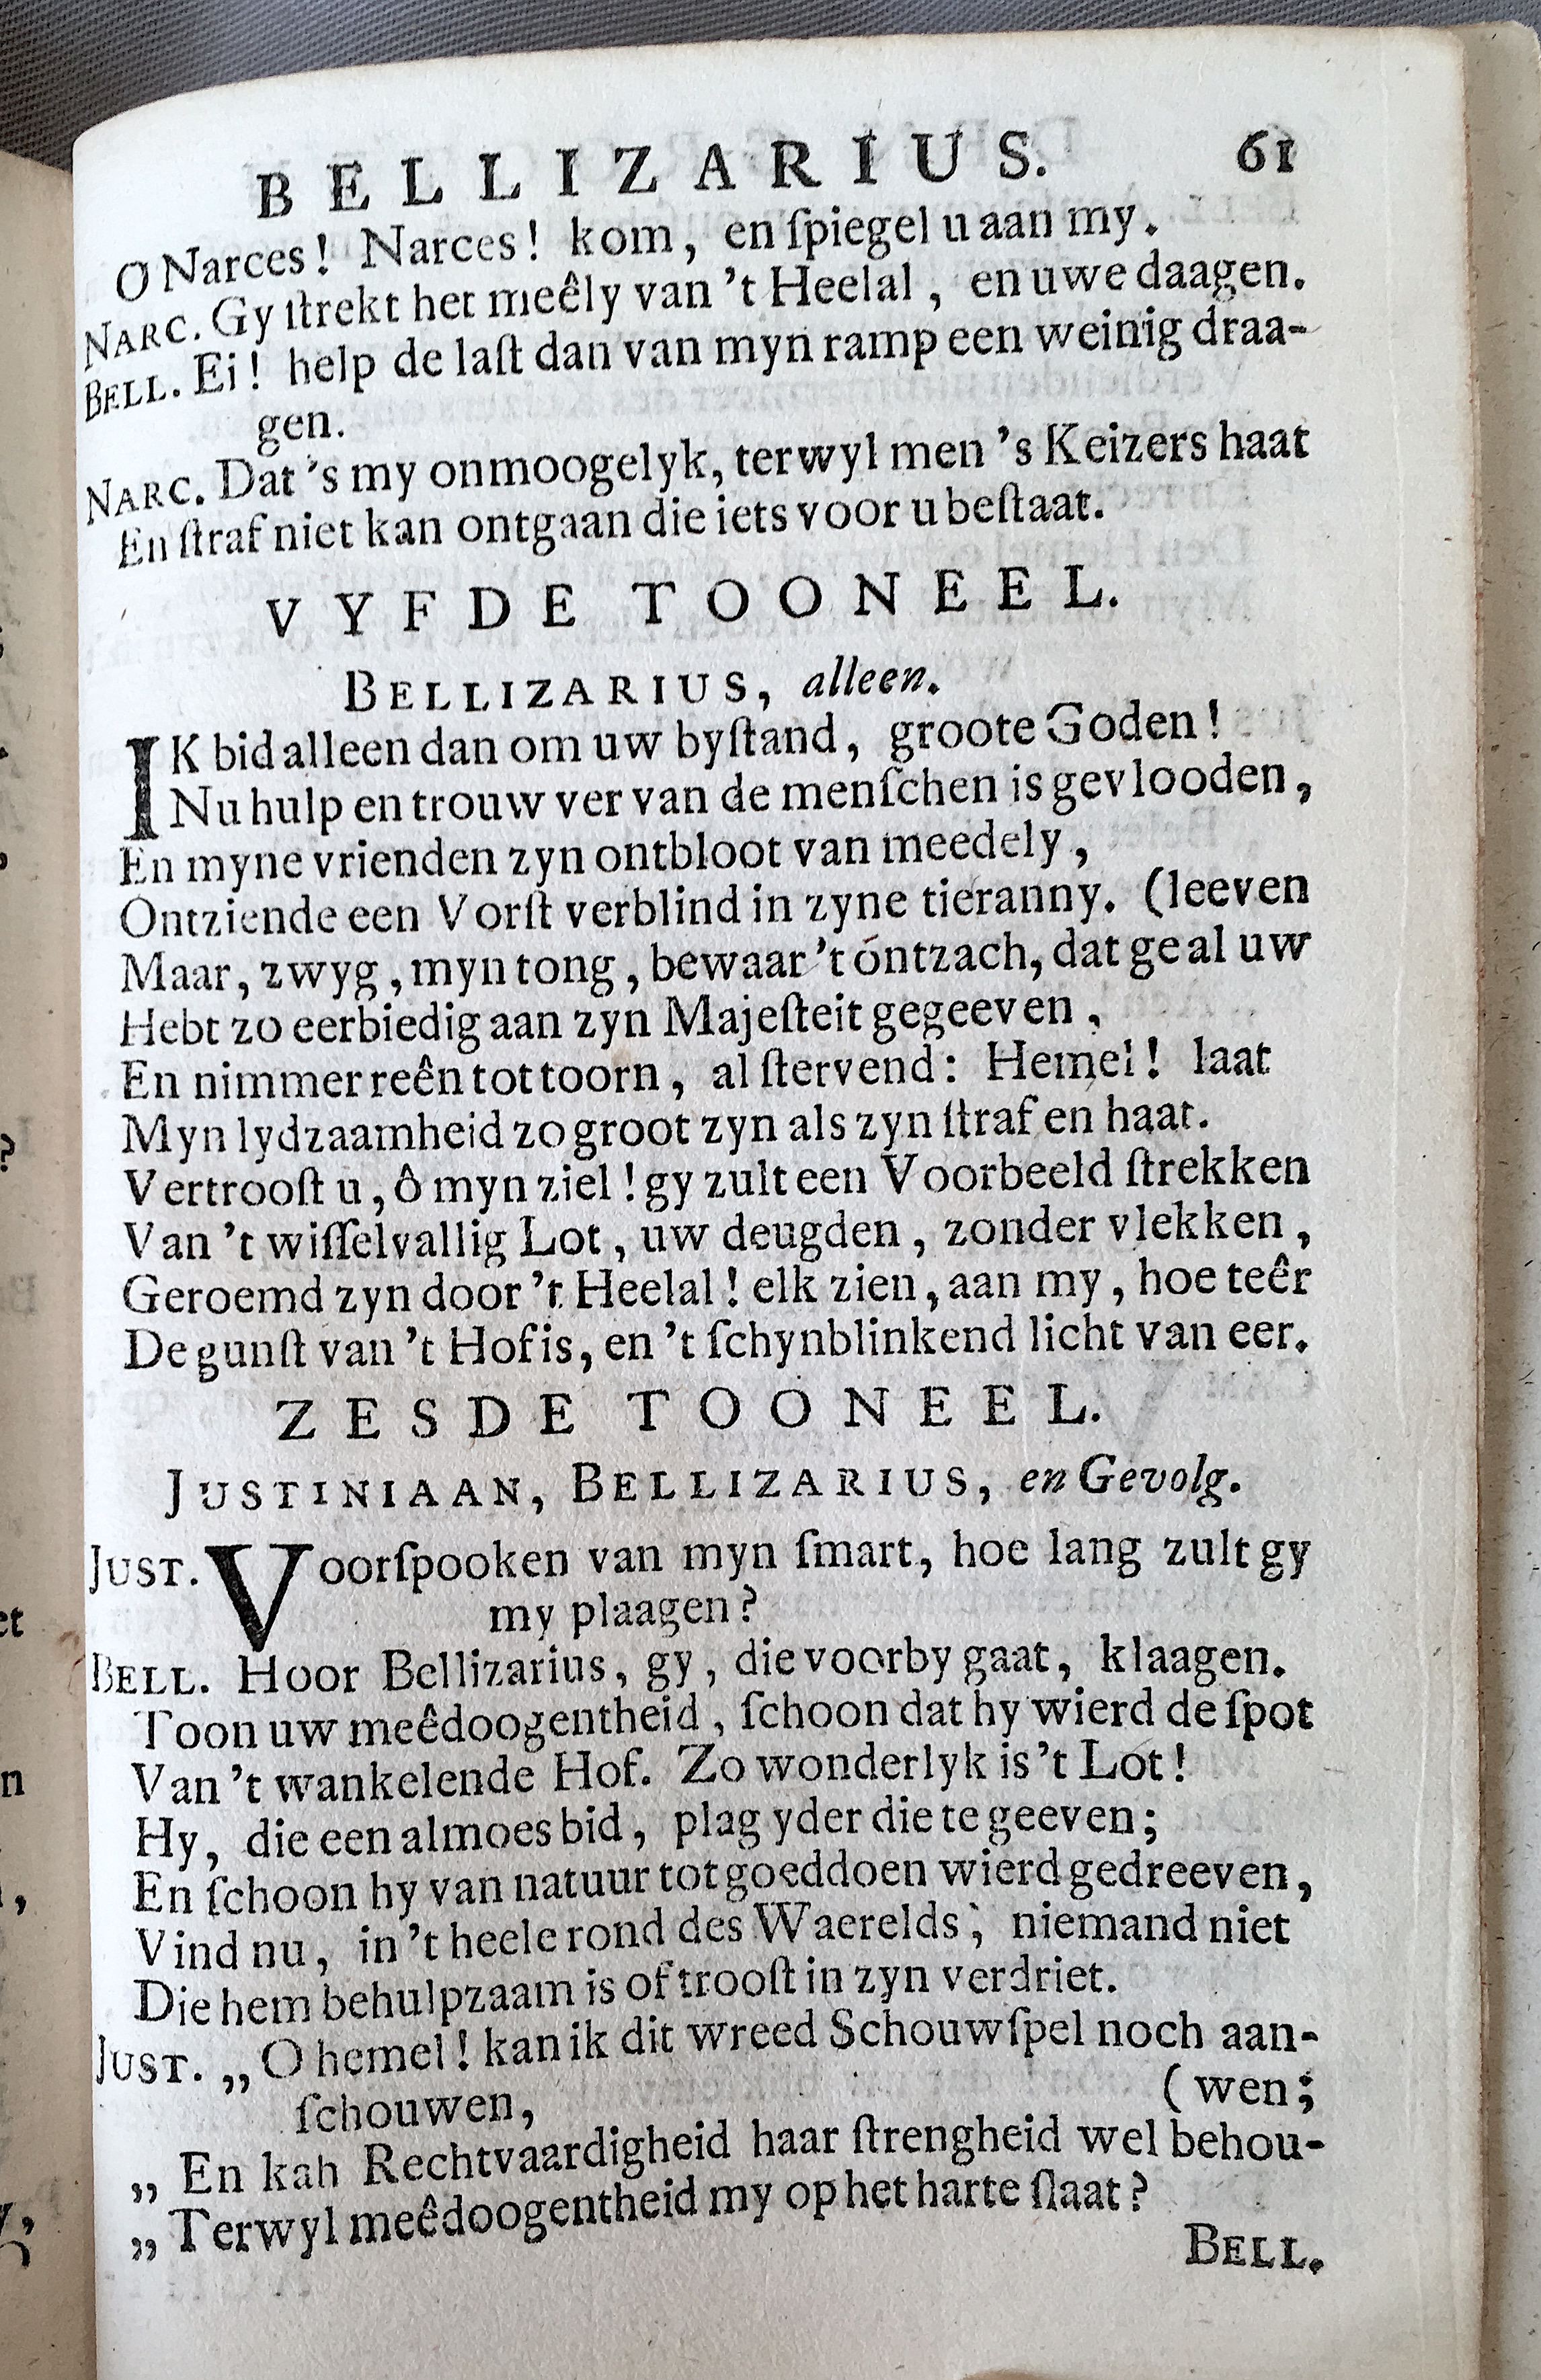 BELLIZARIUS. 61
O Narces! Narces! kom, en ſpiegel u aan my.
NARC. Gy ſtrekt het meêly van 't Heelal, en uwe daagen.
BELL. Ei! help de laſt dan van myn ramp een weinig draa-
gen.
NARC. Dat 's my onmoogelyk, terwyl men 's Keizers haat
En ſtraf niet kan ontgaan die iets voor u beſtaat.
VYFDE TOONEEL.
BELLIZARIUS, alleen.
IK bid alleen dan om uw byſtand, groote Goden!
Nu hulp en trouw ver van de menſchen is gevlooden,
En myne vrienden zyn ontbloot van meedely,
Ontziende een Vorſt verblind in zyne tieranny. (leeven
Maar, zwyg, myn tong, bewaar 't óntzach, dat ge al uw
Hebt zo eerbiedig aan zyn Majeſteit gegeeven,
En nimmer reên tot toorn, al ſtervend: Hemel! laat
Myn lydzaamheid zo groot zyn als zyn ſtraf en haat.
Vertrooſt u, ô myn ziel! gy zult een Voorbeeld ſtrekken
Van 't wiſſelvallig Lot, uw deugden, zonder vlekken,
Geroemd zyn door 't Heelal! elk zien, aan my, hoe teêr
De gunſt van 't Hof is, en 't ſchynblinkend licht van eer.
ZESDE TOONEEL.
JUSTINIAAN, BELLIZARIUS, en Gevolg.
JUST. Voorſpooken van myn ſmart, hoe lang zult gy
my plaagen?
BELL. Hoor Bellizarius, gy, die voorby gaat, klaagen.
Toon uw meêdoogentheid, ſchoon dat hy wierd de ſpot
Van 't wankelende Hof. Zo wonderlyk is 't Lot!
Hy, die een almoes bid, plag yder die te geeven;
En ſchoon hy van natuur tot goeddoen wierd gedreeven,
Vind nu, in 't heele rond des Waerelds; niemand niet
Die hem behulpzaam is of trooſt in zyn verdriet.
JUST. „O hemel! kan ik dit wreed Schouwſpel noch aan-
ſchouwen, (wen;
„ En kan Rechtvaardigheid haar ſtrengheid wel behou-
„ Terwyl meêdoogentheid my op het harte ſlaat?
BELL.